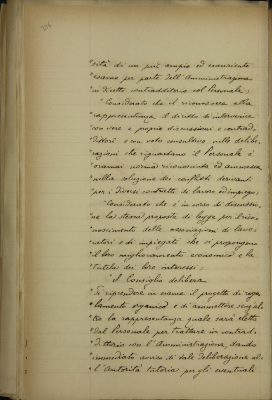 "sità di un più ampio ed esauriente
"esame per parte dell'Amministrazione
"in diretto contradditorio col Personale;
"Considerato che il riconoscere alla
"rappresentanza il diritto di intervenire
"con vere e proprie discussioni e contrad-
"dittori e con voto consultivo nelle delibe-
"razioni che riguardano il Personale è
"oramai norma riconosciuta ed ammessa
"nella soluzione dei conflitti derivanti
"per i diversi contratti di lavoro ed impiego;
"Considerato che è in corso di discussio-
"ne la stessa proposta di legge pel rico-
"noscimento delle associazioni di lavo-
"ratori e di impiegati che si propongono
"il loro miglioramento economico e la
"tutela dei loro interessi;
"Il Consiglio delibera
"di riprendere in esame il progetto di rego-
"lamento organico e di ammettere
"la rappresentanza quale sarà eletta
"dal Personale per trattare in contrad-
"dittorio con l'Amministrazione, dando
"immediato avviso di tale deliberazione al-
"l'Autorità tutoria per gli eventuali